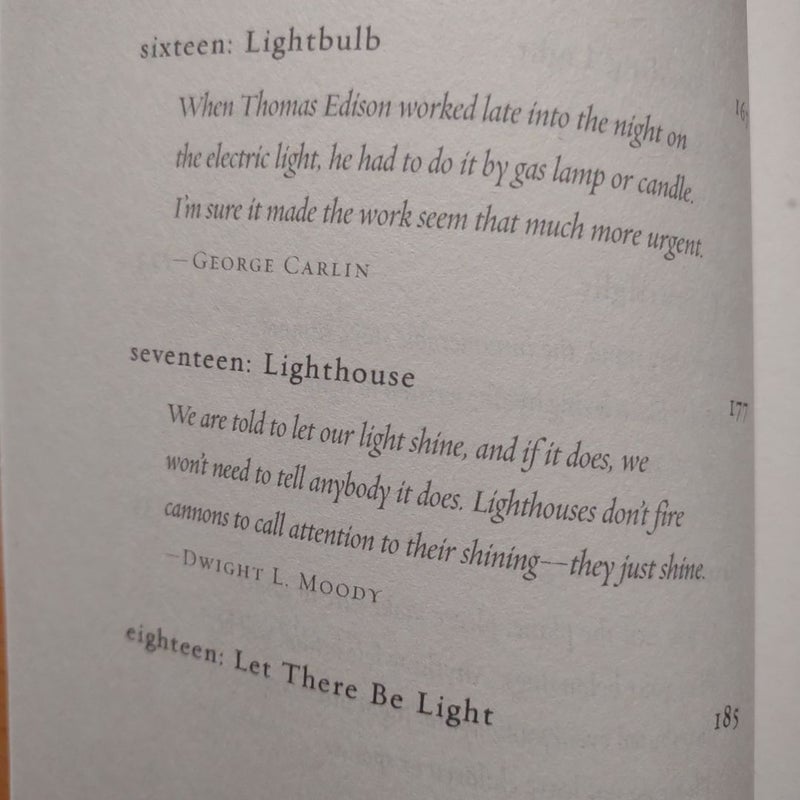 sixteen: Lightbulb
When Thomas Edison worked late into the night on
the electric light, he had to do it by gas lamp or candle.
I'm sure it made the work seem that much more urgent.
—George Carlin
seventeen: Lighthouse 177
We are told to let our light shine, and if it does, we
won't need to tell anybody it does. Lighthouses don't fire
cannons to call attention to their shining—they just shine.
—Dwight L. Moody
eighteen: Let There Be Light 185